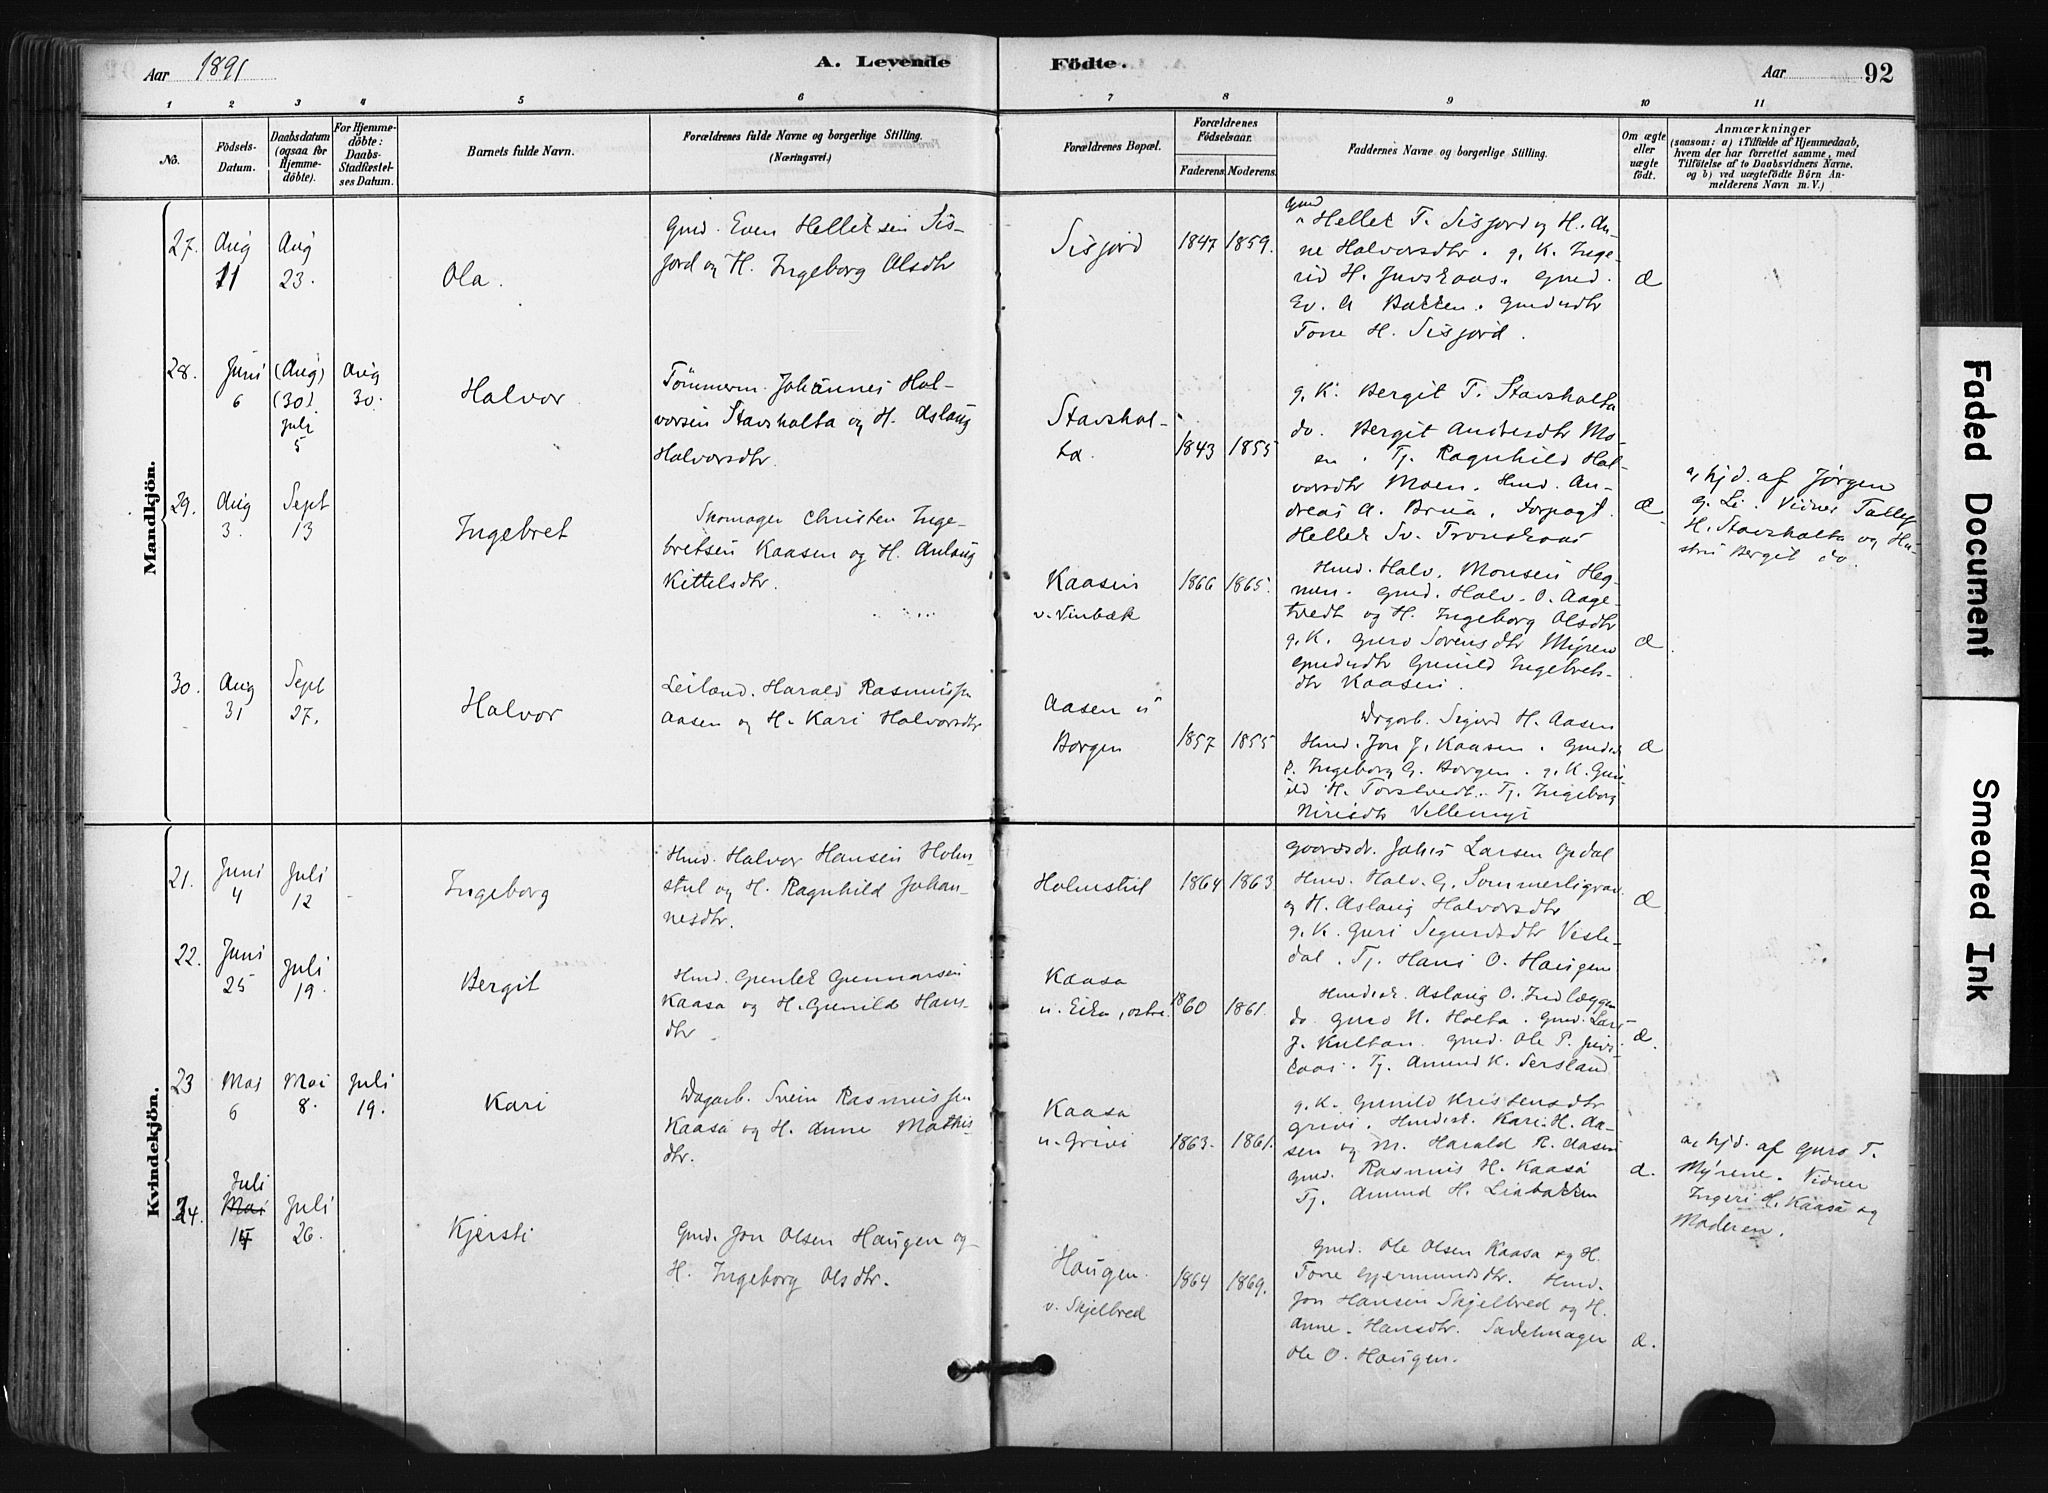 Aar 1891
A. Levende
Födte.
Aar
92
1 2 3 4 5 6 7 8 9 10 11
No.
Födsels-
Datum.
Daabsdatum
(ogsaa for
Hjemme-
döbte).
For Hjemme-
döbte:
Daabs-
Stadfæstel-
ses Datum.
Barnets fulde Navn.
Forældrenes fulde Navne og borgerlige Stilling.
(Næringsvei.)
Forældrenes Bopæl.
Forældrenes
Födselsaar.
Faderens.
Moderens.
Faddernes Navne og borgerlige Stilling.
Om ægte
eller
uægte
födt.
Anmærkninger
(saasom: a) i Tilfælde af Hjemmedaab,
hvem der har forrettet samme, med
Tilföielse af to Daabsvidners Navne.
og b) ved uægtefödte Börn An-
melderens Navn m. V.)
Mandkjön.
27.
Aug
11
Aug
23.
Ola.
Gmd. Even Helleksen Sis-
jord og H. Ingeborg Olsdtr
Sisjord
1847
1859.
Gmd
Hellek T. Sisjord og H. An-
ne Halvorsdtr. g. K. Inge-
rid H. Juvskaas. Gmd.
Ev. A Bakken. Gmdsdtr
Tone H. Sisjord.
Æ
28.
Juni
6
(Aug)
(30).
juli
5
Aug
30.
Halvor
Tømmerm. Johannes Hal-
vorsen Stavsholta og H. Aslaug
Halvorsdtr.
Stavshol-
ta.
1843
1855
g. K. Bergit T. Stavsholta
do. Bergit Andersdtr Mo-
en. Tj. Ragnhild Hal-
vorsdtr Moen. Hmd. An-
dreas A. Brua. Forpagt.
Hellek Sv. Tronskaas
Æ.
a, hjd. af Jørgen
G. Li. Vidner Tallef
H. Stavsholta og Hu-
stru Bergit do.
29.
Aug
3.
Sept
13
Ingebret
Skomager Christen Inge-
bretsen Kaasen og H. Aslaug
Kittelsdtr.
Kaasen
v. Vinbæk
1866
1865.
Hmd. Halv. Monsen Heg-
men. Gmd. Halv. O. Aage-
tvedt og H. Ingeborg Olsdtr
g. K. Guro Sørensdtr Myren
Gmdsdtr Gunild Ingebrets-
dtr Kaasen.
Æ.
30.
Aug
31
Sept
27.
Halvor
Leilænd. Harald Rasmussen
Aasen og H. Kari Halvorsdtr
Aasen u
Borgen
1857
1855
Dagarb. Sigurd H. Aasen
Hmd. Jon J. Kaasen. Gmdsk
P. Ingeborg G. Borgen. g. K. Gun-
ild H. Torstvedt. Tj. Ingeborg
Nirisdtr Vellemyr
Æ
Kvindekjön.
21.
Juni
4
Juli
12
Ingeborg
Hmd. Halvor Hansen Holm-
stul og H. Ragnhild Johan-
nesdtr.
Holmstul
1864
1863.
Gaardsdr. Johs Larsen Opdal
Hmd. Halv. G. Sommerligrav
og H. Aslaug Halvorsdtr
g. K. Guri Sigurdsdtr Vesle-
dal. Tj. Hans O. Haugen
Æ
22.
Juni
25
Juli
19.
Bergit
Hmd. Guntek Gunnarsen
Kaasa og H. Gunild Hans-
dtr
Kaasa
u. Eika, østre.
1860
1861.
Hmdsk. Aslaug O. Indlæggen
do. Guro N. Holta. Gmd. Lars
J. Kultan. Gmd. Ole P. Juvs-
kaas. Tj. Amund K. Sersland
Æ.
23
Mai
6
Mai
8.
Juli
19.
Kari
Dagarb. Svein Rasmussen
Kaasa og H. Anne Mathis-
dtr.
Kaasa
u. Grivi
1863.
1861.
g. K. Gunild Kristensdtr
Grivi. Hmdsk. Kari H. Aa-
sen og M. Harald R. Aasen
Gmd. Rasmus H. Kaasa
Tj. Amund H. Liabakken
Æ.
a, hjd. af Guro T.
Myrene. Vidner
Ingeri H. Kaasa og
Moderen.
24.
Juli
Mai
14
Juli
26.
Kjersti
Gmd. Jon Olsen Haugen og
H. Ingeborg Olsdtr.
Haugen.
v. Skjelbred
1864
1869.
Gmd. Ole Olsen Kaasa og H.
Tone Gjermundsdtr. Hmd.
Jon Hansen Skjelbred og H.
Anne. Hansdtr. Sadelmager
Ole O. Haugen.
Æ.
Faded Document
Smeared Ink